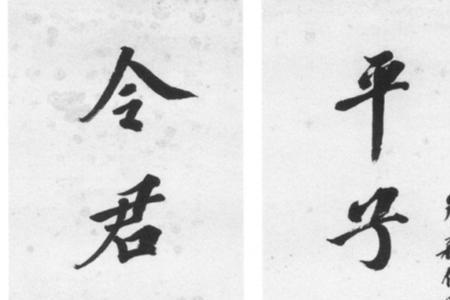 平子
令君